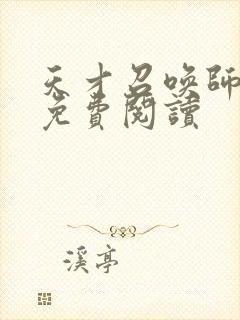 天才召喚師
免費閱讀
溪亭